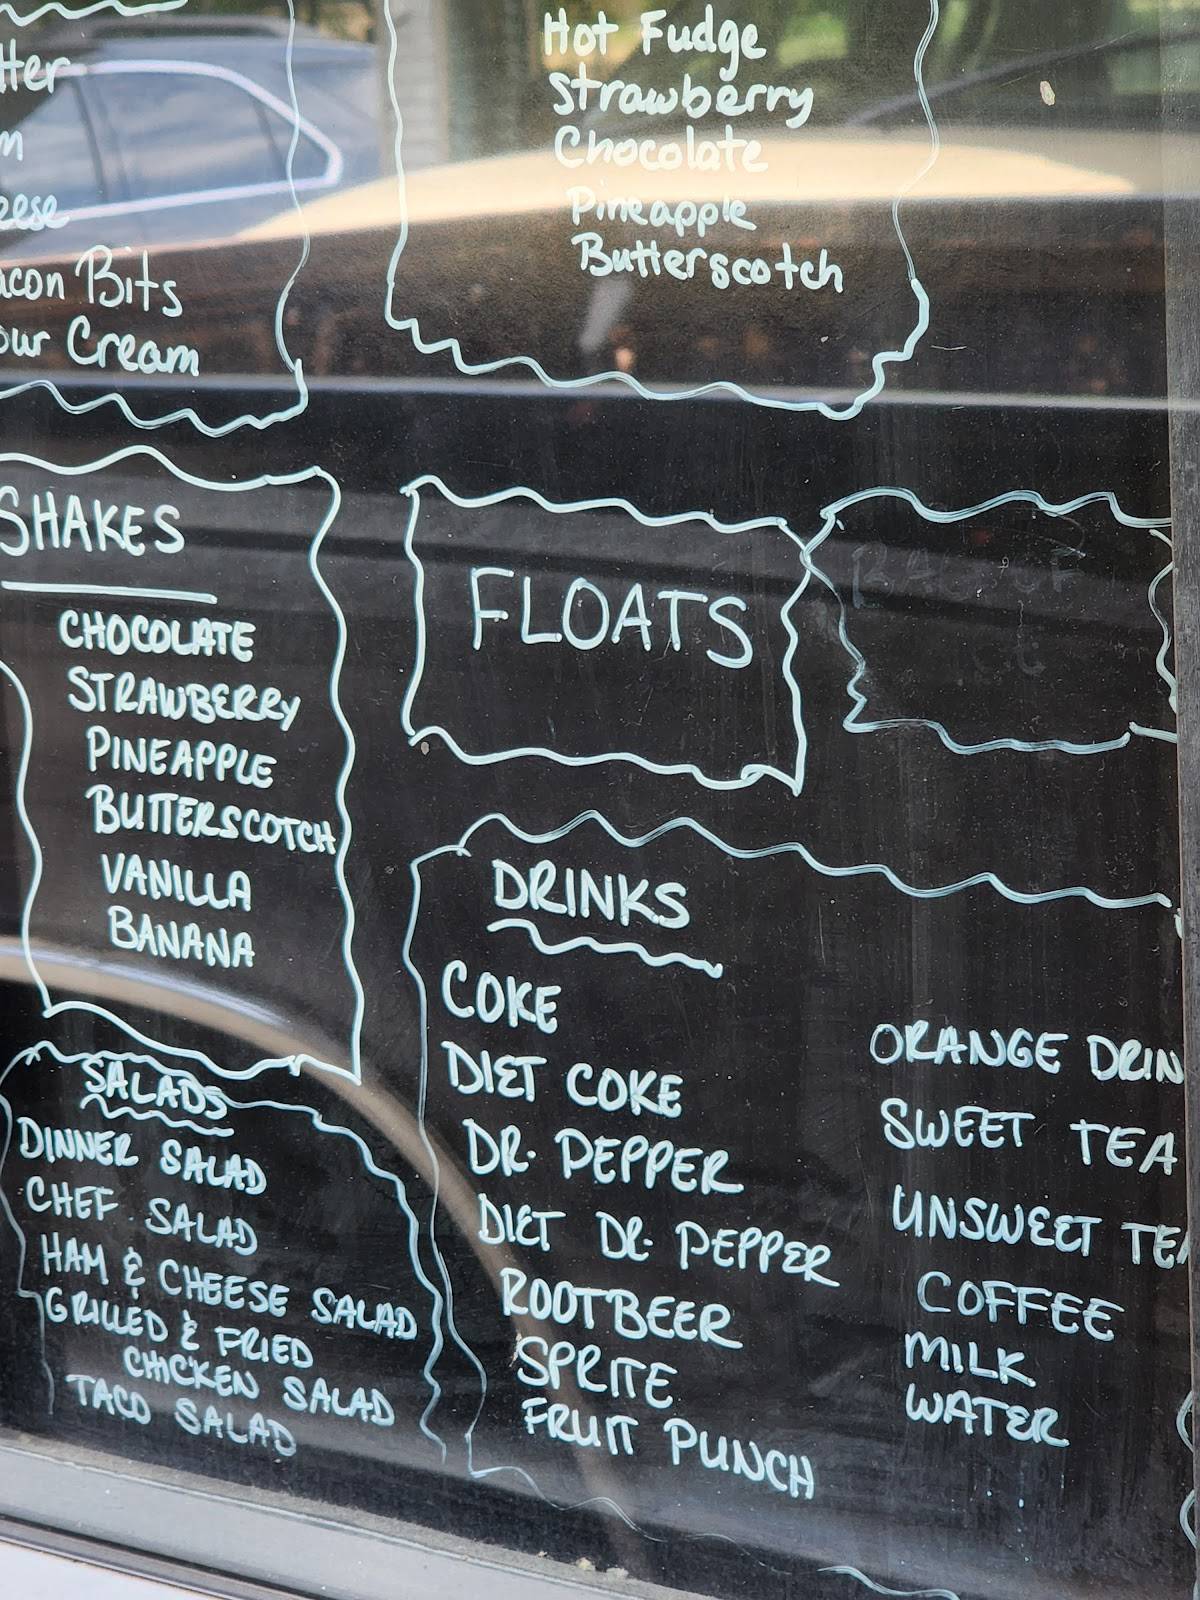 Bits
Cream
Hot Fudge
Strawberry
Chocolate
Pineapple
Butterscotch
SHAKES
CHOCOLATE
STRAWBERRY
PINEAPPLE
BUTTERSCOTCH
VANILLA
BANANA
FLOATS
SALADS
DINNER SALAD
CHEF SALAD
HAM & CHEESE SALAD
GRILLED & FRIED
CHICKEN SALAD
TACO SALAD
DRINKS
COKE
DIET COKE
DR. PEPPER
DIET DR. PEPPER
ROOTBEER
SPRITE
FRUIT PUNCH
ORANGE DRIN
SWEET TEA
UNSWEET TEA
COFFEE
MILK
WATER